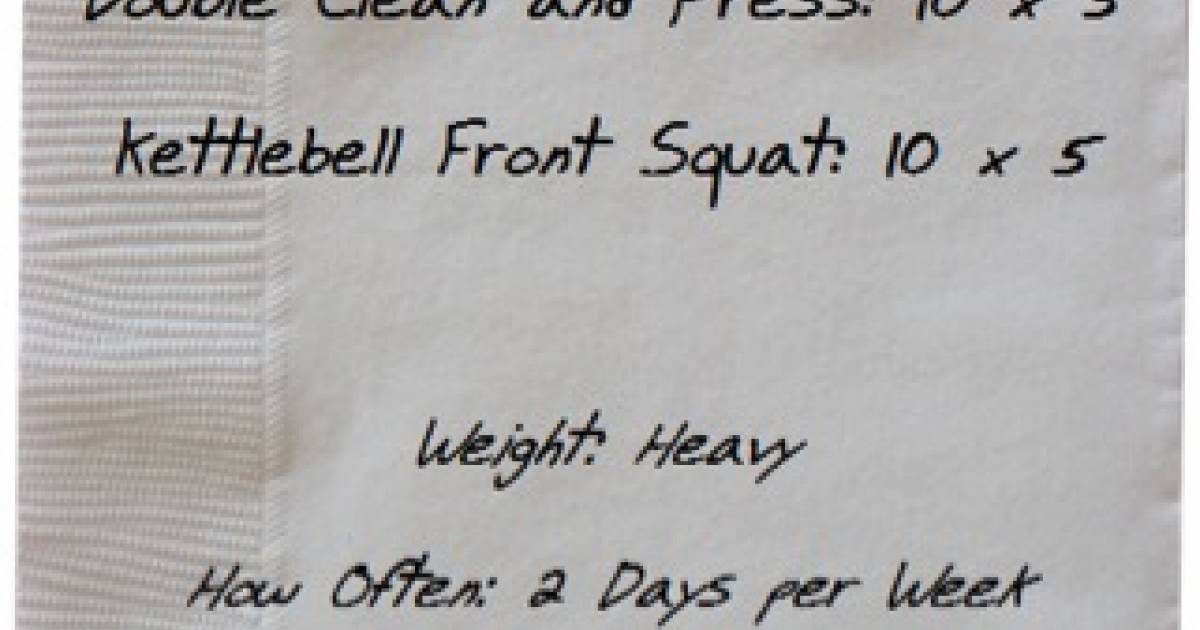 Double Clean and Press: 10 x 5
Kettlebell Front Squat: 10 x 5
Weight: Heavy
How Often: 2 Days per Week